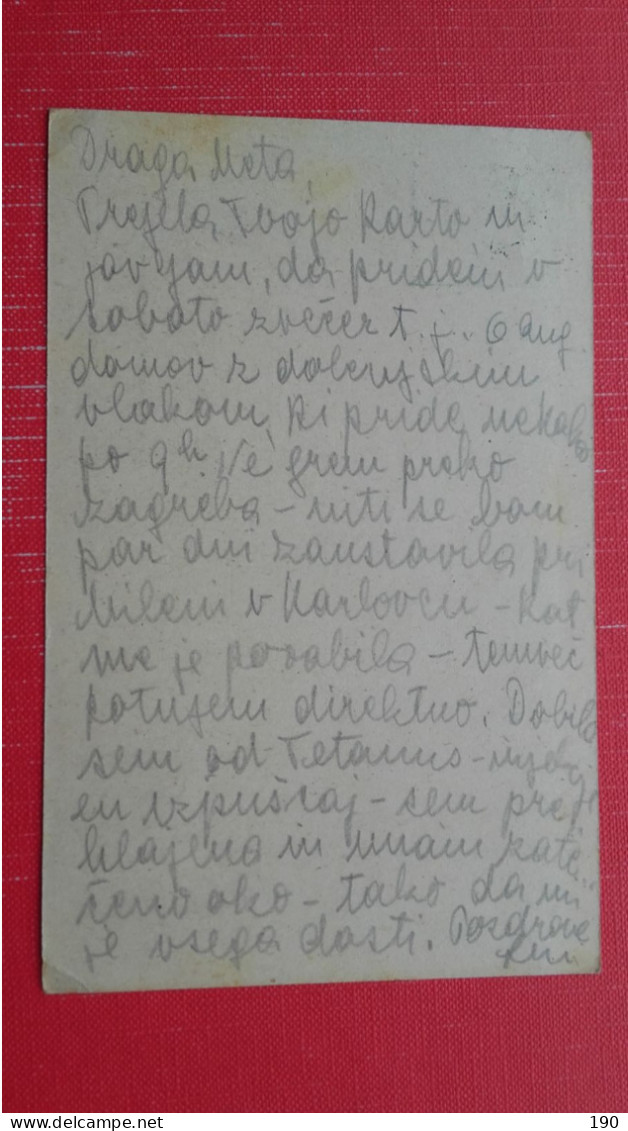 Draga Meta,
Prejela Tvojo karto in
javljam, da pridem v
soboto zvečer t. j. 6 aug.
domov z dolenjskim
vlakom, ki pride nekako
po 9h. Ne grem preko
Zagreba – niti se bom
par dni zaustavila pri
Mileni v Karlovcu – kat
me je povabila – temveč
potujem direktno. Dobila
sem od Tetanus –
en izpuščaj – sem pre
hlajena in imam zate
čeno oko – tako da mi
je vsega dosti. Pozdrave
190
www.delcampe.net